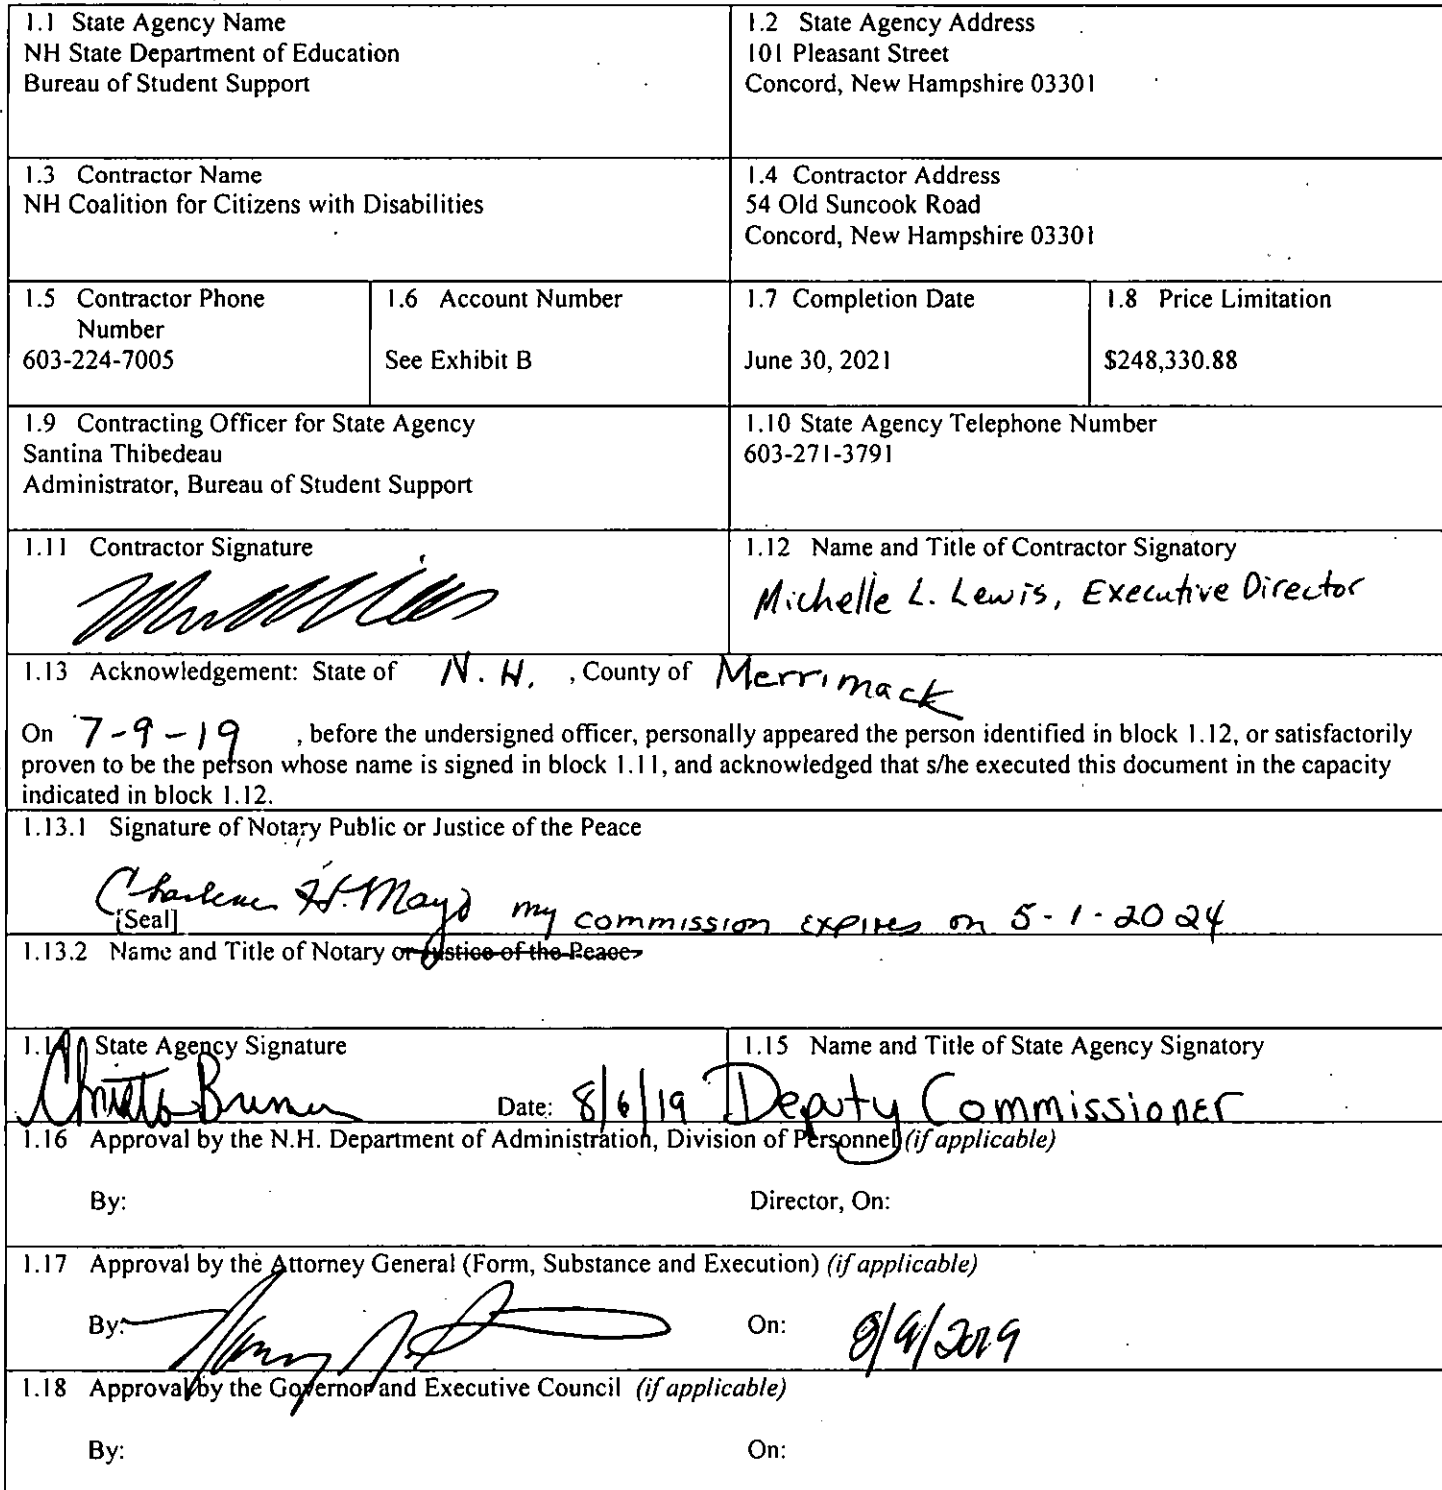 1.1 State Agency Name
NH State Department of Education
Bureau of Student Support
1.2 State Agency Address
101 Pleasant Street
Concord, New Hampshire 03301
1.3 Contractor Name
NH Coalition for Citizens with Disabilities
1.4 Contractor Address
54 Old Suncook Road
Concord, New Hampshire 03301
1.5 Contractor Phone
Number
603-224-7005
1.6 Account Number
See Exhibit B
1.7 Completion Date
June 30, 2021
1.8 Price Limitation
$248,330.88
1.9 Contracting Officer for State Agency
Santina Thibedeau
Administrator, Bureau of Student Support
1.10 State Agency Telephone Number
603-271-3791
1.11 Contractor Signature
1.12 Name and Title of Contractor Signatory
Michelle L. Lewis, Executive Director
1.13 Acknowledgement: State of N.H. , County of Merrimack
On 7-9-19 , before the undersigned officer, personally appeared the person identified in block 1.12, or satisfactorily
proven to be the person whose name is signed in block 1.11, and acknowledged that s/he executed this document in the capacity
indicated in block 1.12.
1.13.1 Signature of Notary Public or Justice of the Peace
Charlene H. Mayo my commission expires on 5-1-2024
[Seal]
1.13.2 Name and Title of Notary or Justice of the Peace
1.14 State Agency Signature
Date: 8/6/19
1.15 Name and Title of State Agency Signatory
Deputy Commissioner
1.16 Approval by the N.H. Department of Administration, Division of Personnel (if applicable)
By:
Director, On:
1.17 Approval by the Attorney General (Form, Substance and Execution) (if applicable)
By:
On: 8/9/2019
1.18 Approval by the Governor and Executive Council (if applicable)
By:
On: